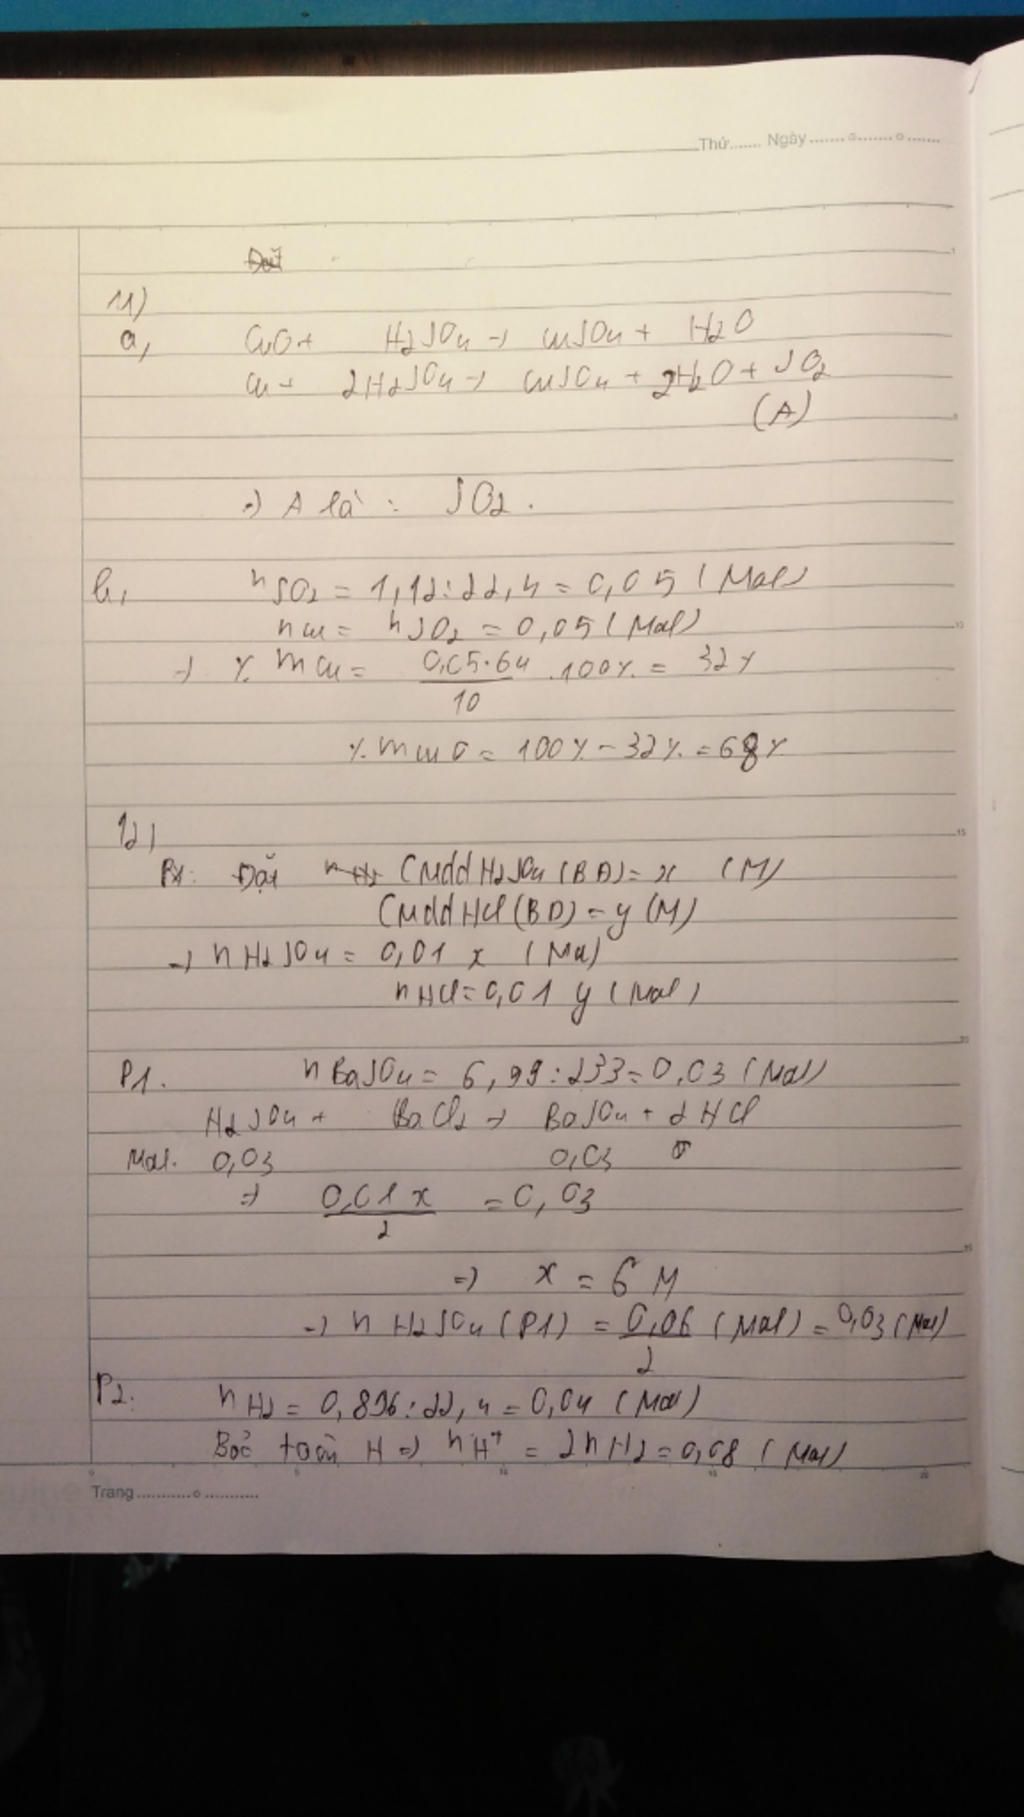 Thứ....... Ngày ....... o ....... o .......
11)
a, CuO + H2SO4 → CuSO4 + H2O
Cu + 2H2SO4 → CuSO4 + 2H2O + SO2
(A)
=) A là : SO2.
b, nSO2 = 1,12 : 22,4 = 0,05 (Mol)
nCu = nSO2 = 0,05 (Mol)
→ % mCu = 0,05.64/10 .100% = 32%
% mCuO = 100% - 32% = 68%
12)
Đặt CMddH2SO4 (BĐ) = x (M)
CMddHCl (BĐ) = y (M)
→ nH2SO4 = 0,01 x (Mol)
nHCl = 0,01 y (Mol)
P1. nBaSO4 = 6,99 : 233 = 0,03 (Mol)
H2SO4 + BaCl2 → BaSO4 + 2HCl
Mol. 0,03 0,03
=) 0,01x/2 = 0,03
=) x = 6 M
→ nH2SO4 (P1) = 0,06/2 (Mol) = 0,03 (Mol)
P2. nH2 = 0,896 : 22,4 = 0,04 (Mol)
Bảo toàn H =) nH+ = 2nH2 = 0,08 (Mol)
Trang ........... o ...........